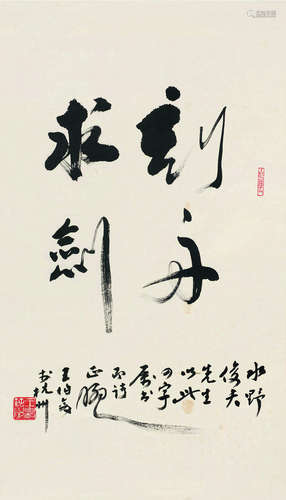 刻舟
求劍
水野
俊夫
先生
以此
四字
属书
正
王伯敏
书杭州